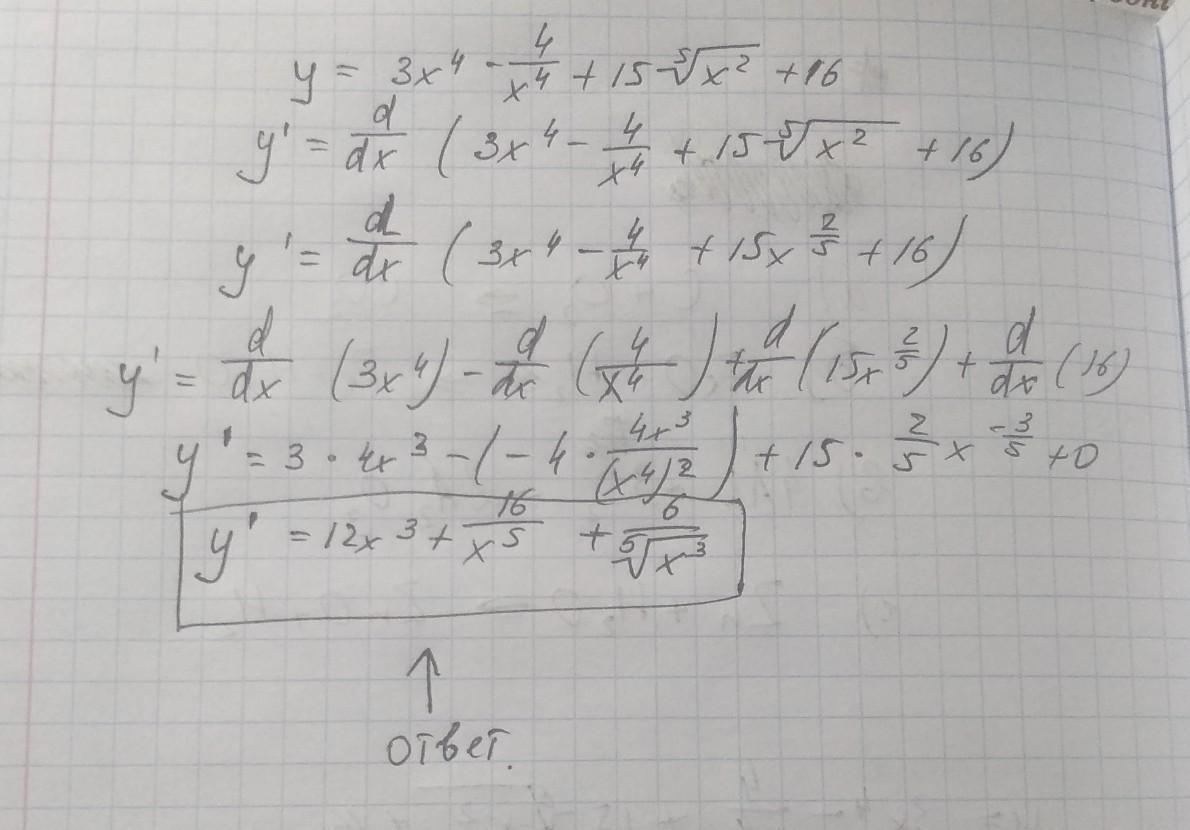 y = 3x⁴ - 4/x⁴ + 15 ⁵√x² + 16
y' = d/dx (3x⁴ - 4/x⁴ + 15 ⁵√x² + 16)
y' = d/dx (3x⁴ - 4/x⁴ + 15x^(2/5) + 16)
y' = d/dx (3x⁴) - d/dx (4/x⁴) + d/dx (15x^(2/5)) + d/dx (16)
y' = 3 · 4x³ - (- 4 · 4x³/(x⁴)²) + 15 · 2/5 x^(-3/5) + 0
y' = 12x³ + 16/x⁵ + 6/⁵√x³
ответ.